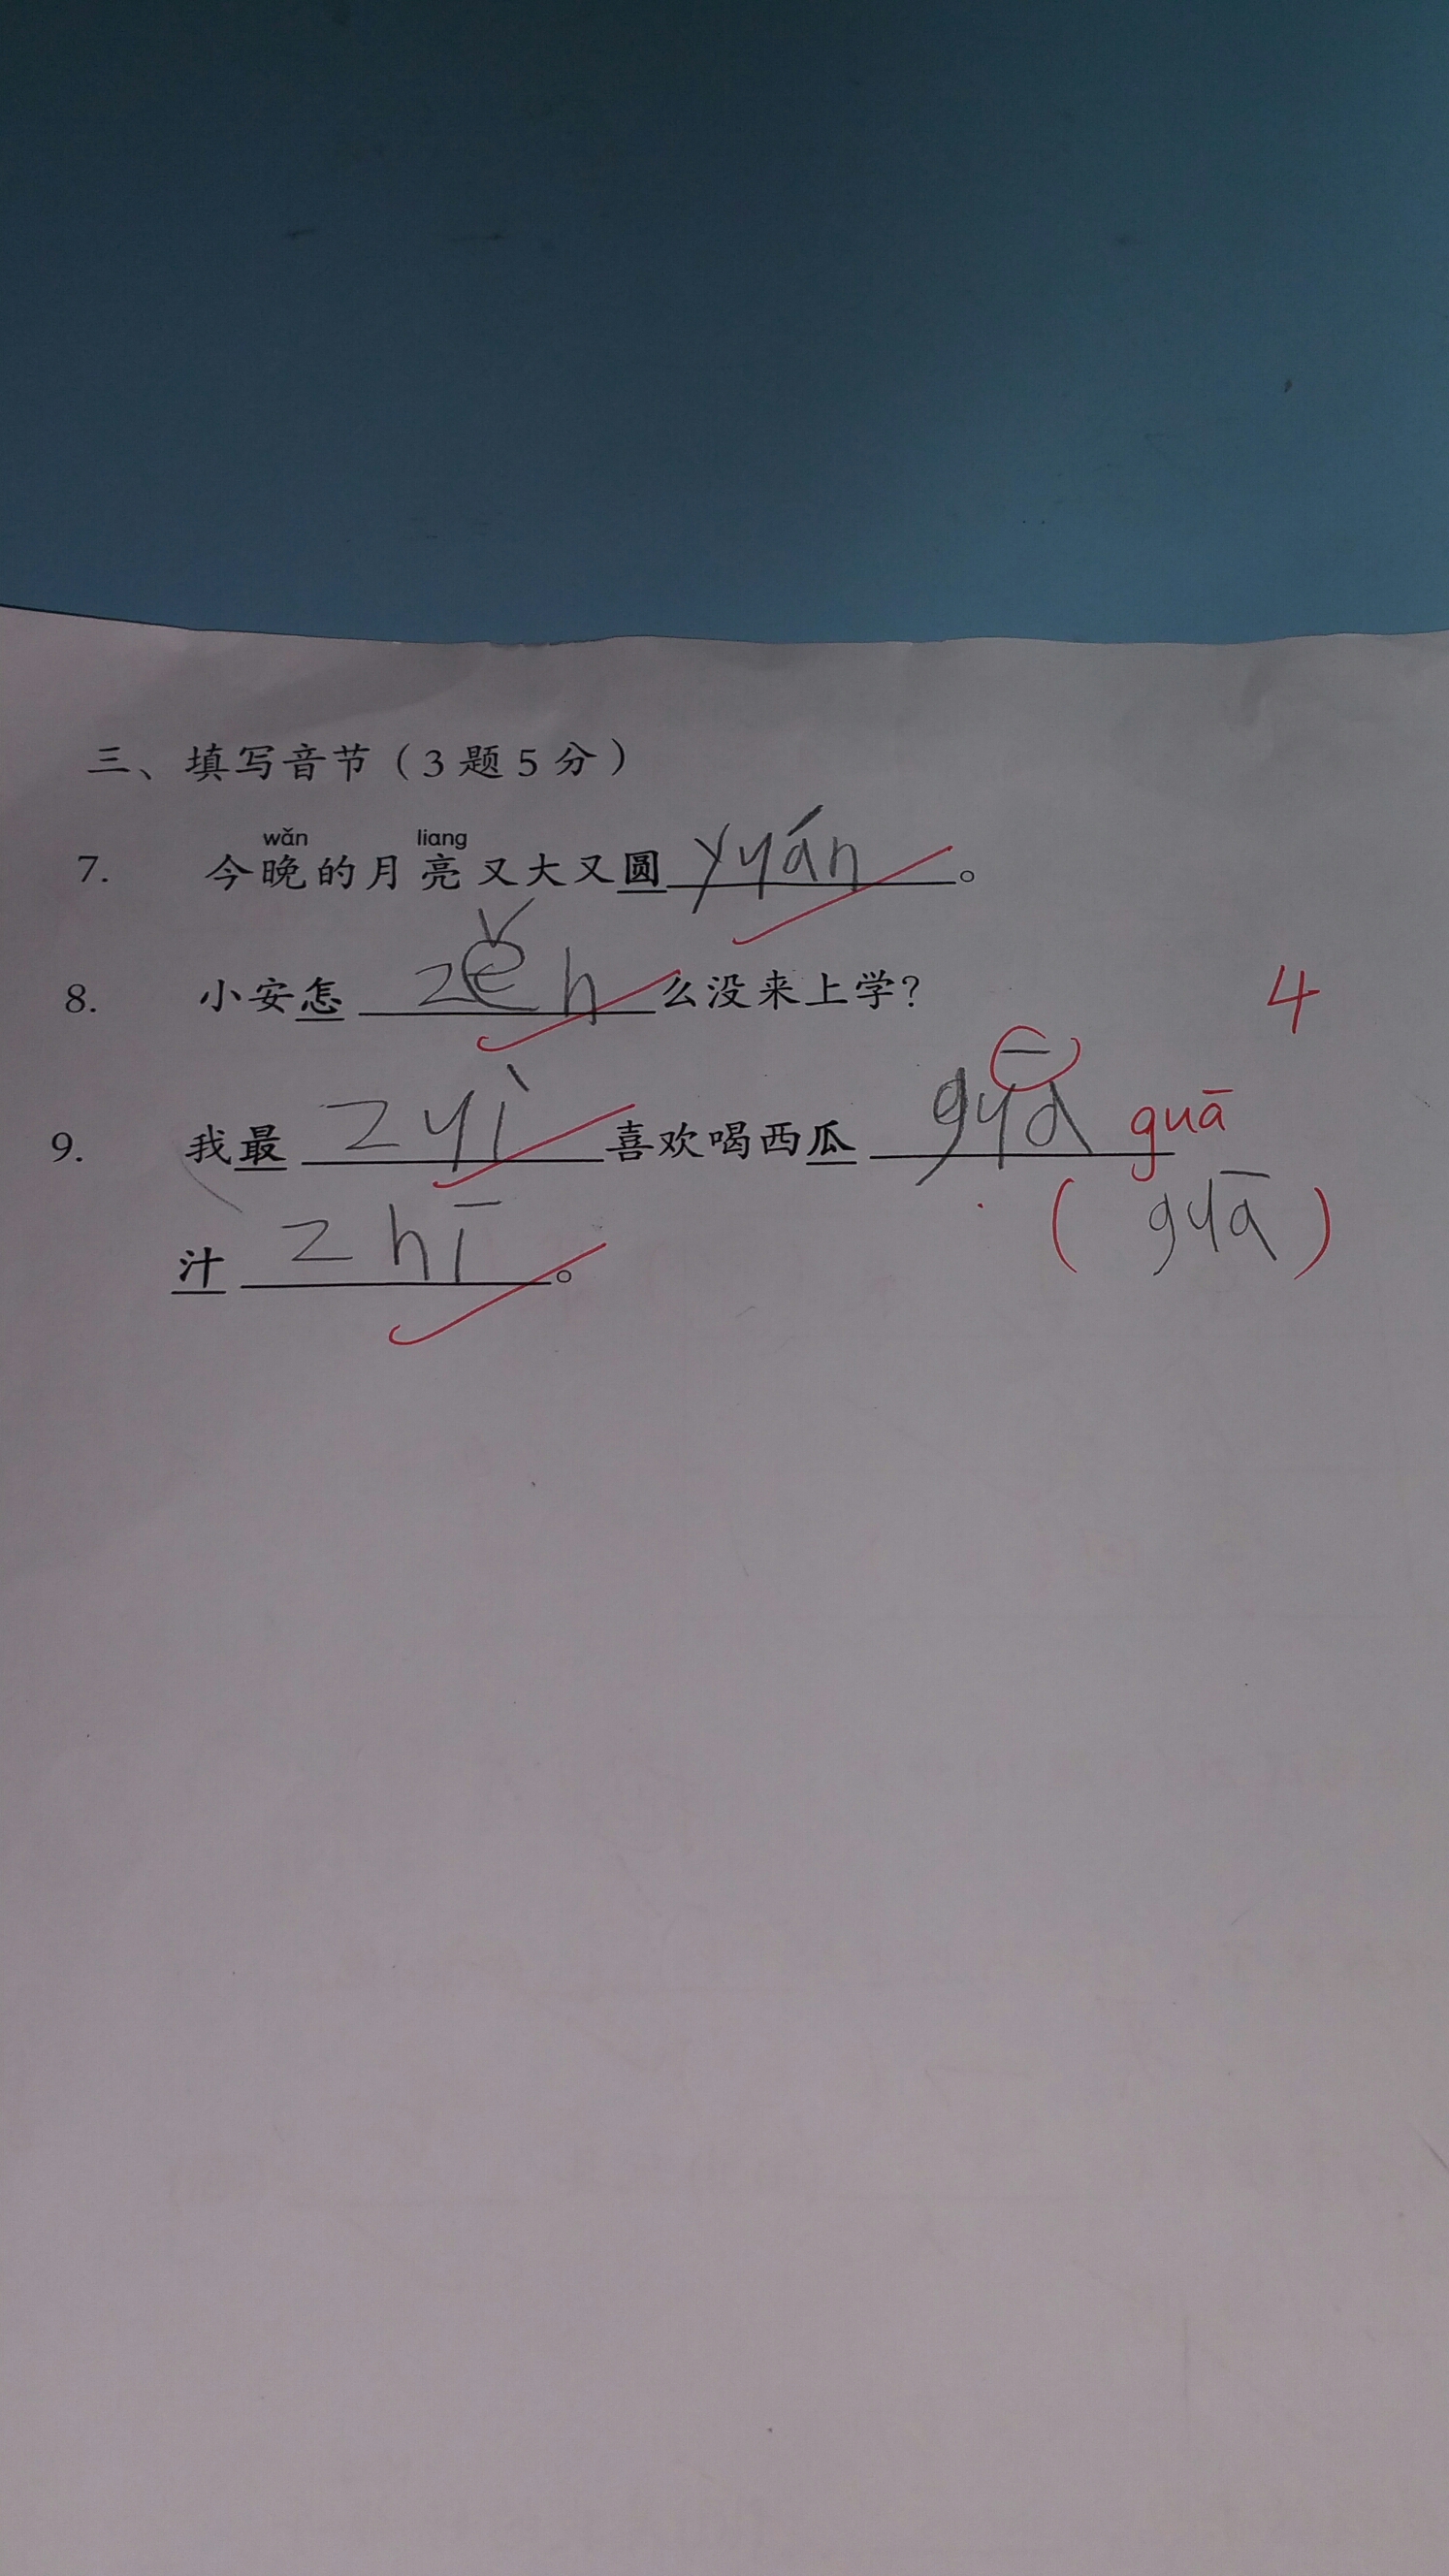 三、填写音节（3题5分）
wǎn liang
7. 今晚的月亮又大又圆 yuán。
8. 小安怎 zěn 么没来上学？
4
9. 我最 zuì 喜欢喝西瓜 guā guā
(guā)
汁 zhī。